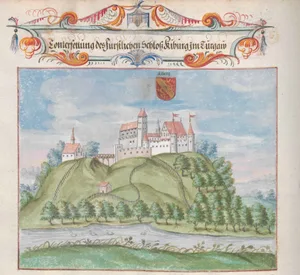 Conterfettung des Fürstlichen Schloss Kiburg Im Turgaw